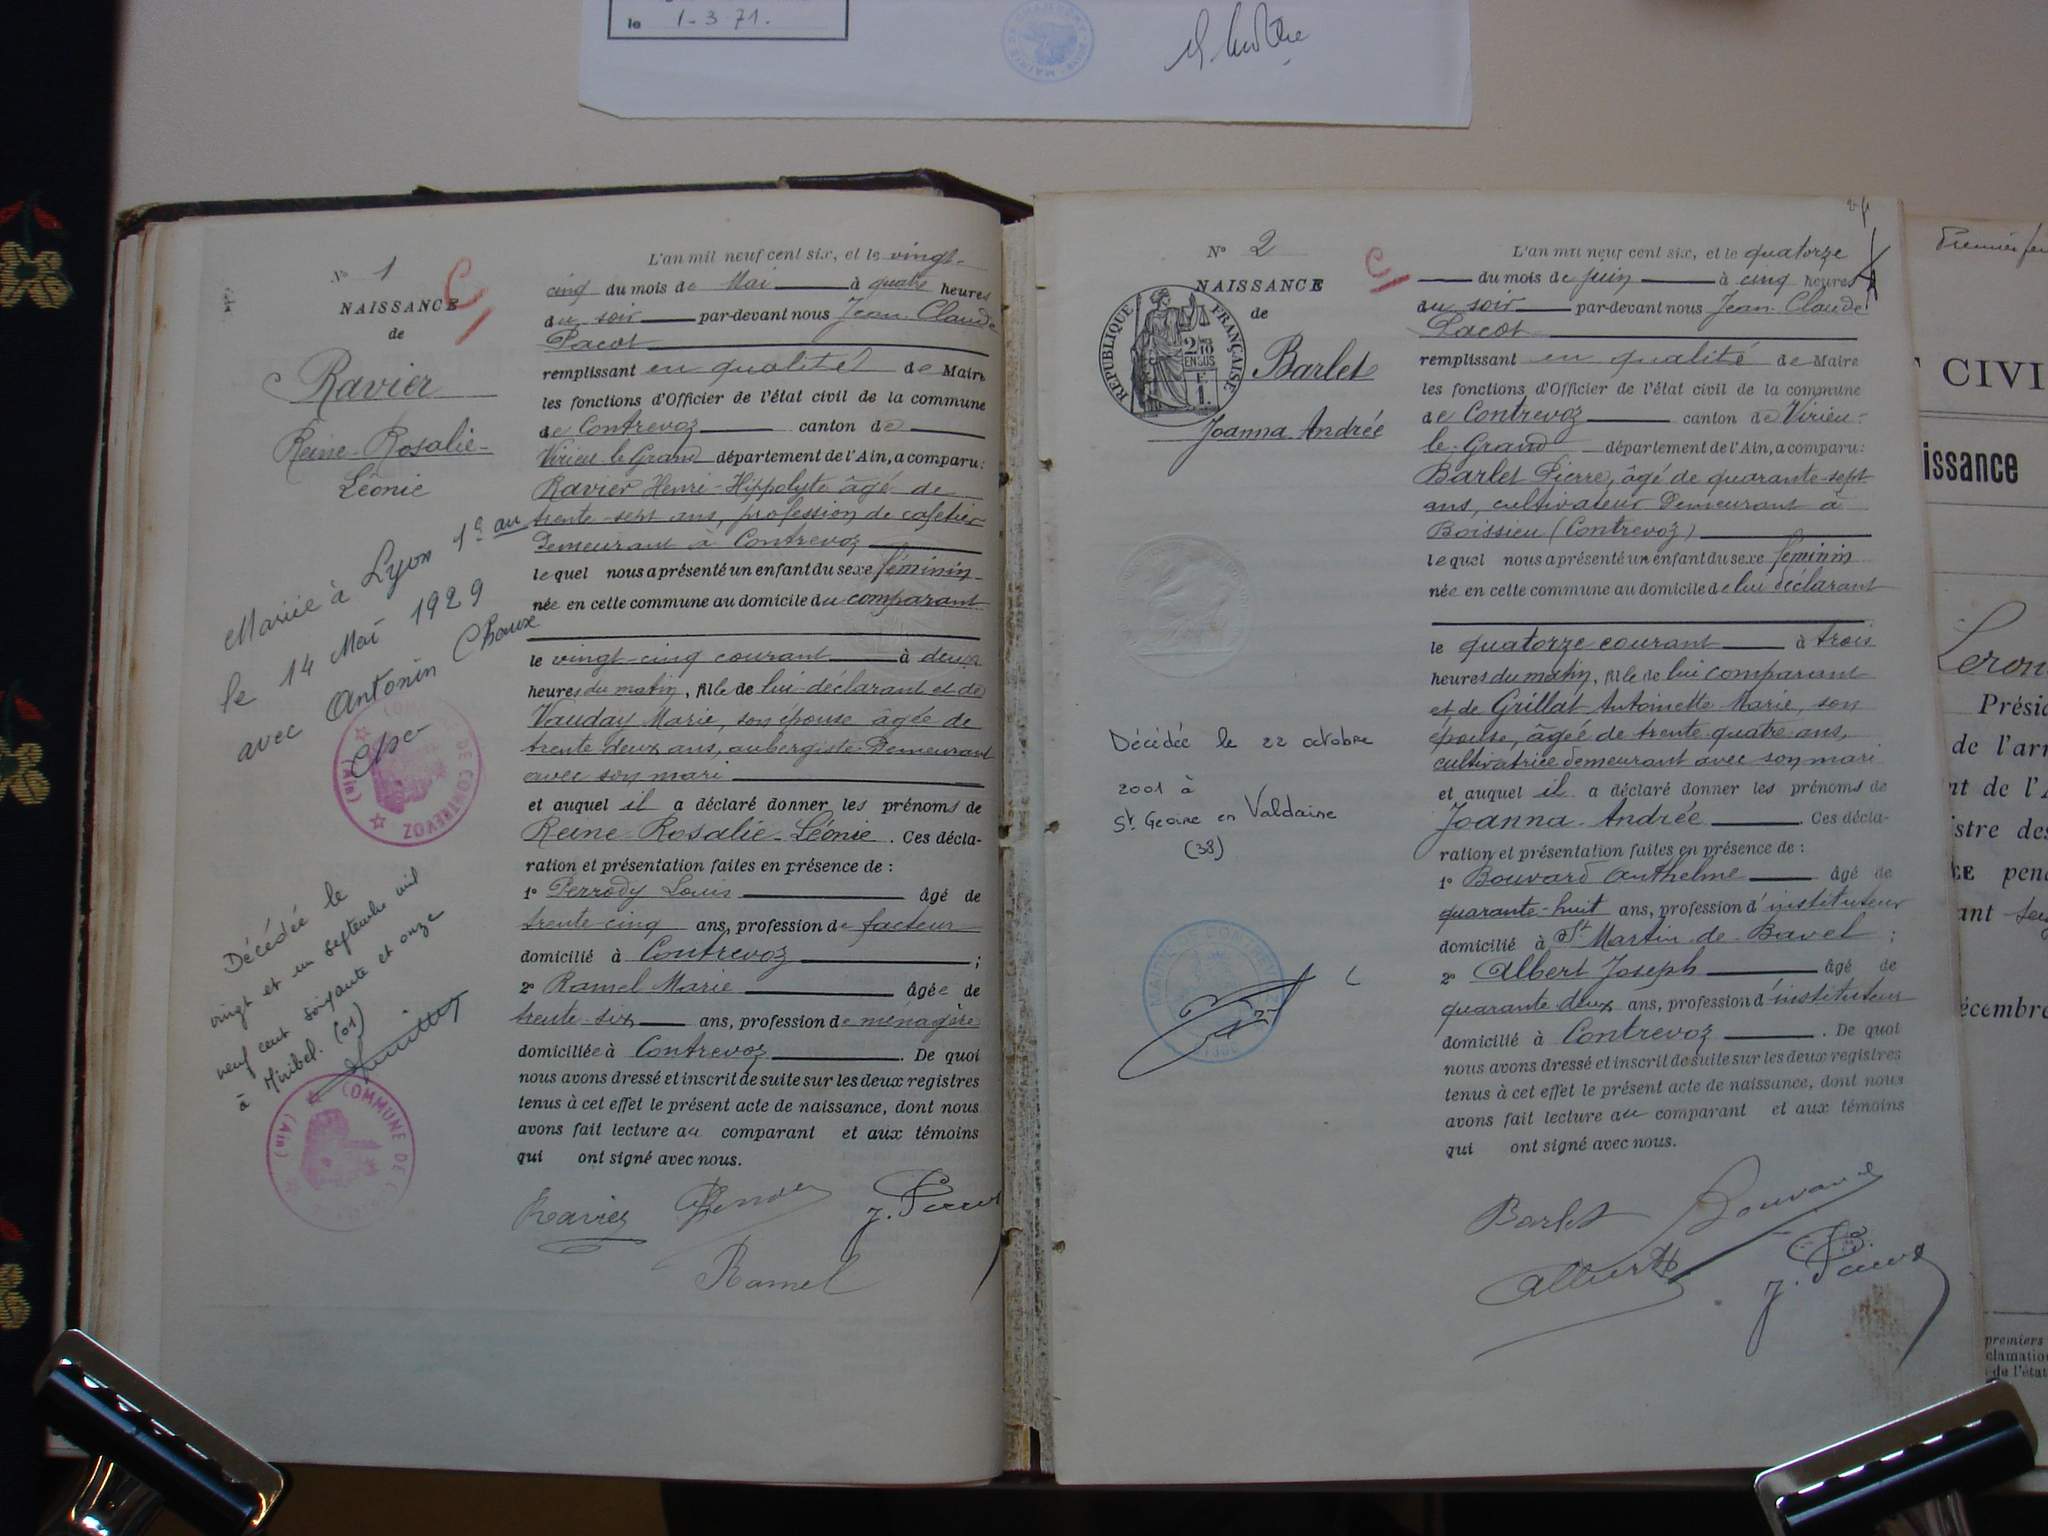 le 1-3 71.
N° 1
NAISSANCE
de
Ravier
Reine-Rosalie-
Léonie
Mariée à Lyon 1er au
le 14 Mai 1929
avec Antonin Choux
COMMUNE DE CONTREVOZ
(Ain)
Décédée le
vingt et un septembre mil
neuf cent soixante et onze
à Miribel. (01)
COMMUNE DE
(Ain)
L'an mil neuf cent six, et le vingt-
cinq du mois de Mai à quatre heures
du soir par-devant nous Jean-Claude
Pacot
remplissant en qualité de Maire
les fonctions d'Officier de l'état civil de la commune
de Contrevoz canton de
Virieu le Grand département de l'Ain, a comparu:
Ravier Henri-Hippolyte âgé de
trente-sept ans, profession de cafetier
Demeurant à Contrevoz
lequel nous a présenté un enfant du sexe féminin
née en cette commune au domicile du comparant
le vingt-cinq courant à deux
heures du matin, fille de lui déclarant et de
Vauday Marie, son épouse âgée de
trente deux ans, aubergiste Demeurant
avec son mari
et auquel il a déclaré donner les prénoms de
Reine-Rosalie-Léonie. Ces décla-
ration et présentation faites en présence de :
1° Perrody Louis âgé de
trente-cinq ans, profession de facteur
domicilié à Contrevoz ;
2° Ramel Marie âgée de
trente-six ans, profession de ménagère
domiciliée à Contrevoz. De quoi
nous avons dressé et inscrit de suite sur les deux registres
tenus à cet effet le présent acte de naissance, dont nous
avons fait lecture au comparant et aux témoins
qui ont signé avec nous.
Ravier
Ramel
N° 2
NAISSANCE
de
RÉPUBLIQUE FRANÇAISE
2/10 EN SUS
Barlet
Joanna Andrée
Décédée le 22 octobre
2001 à
St Geoire en Valdaine
(38)
MAIRIE DE CONTREVOZ
L'an mil neuf cent six, et le quatorze
du mois de juin à cinq heures
du soir par-devant nous Jean-Claude
Pacot
remplissant en qualité de Maire
les fonctions d'Officier de l'état civil de la commune
de Contrevoz canton de Virieu-
le-Grand département de l'Ain, a comparu:
Barlet Pierre, âgé de quarante-sept
ans, cultivateur Demeurant à
Boissieu (Contrevoz)
lequel nous a présenté un enfant du sexe féminin
née en cette commune au domicile de lui déclarant
le quatorze courant à trois
heures du matin, fille de lui comparant
et de Grillat Antoinette Marie, son
épouse, âgée de trente-quatre ans,
cultivatrice demeurant avec son mari
et auquel il a déclaré donner les prénoms de
Joanna-Andrée. Ces décla-
ration et présentation faites en présence de :
1° Bouvard Anthelme âgé de
quarante-huit ans, profession d'instituteur
domicilié à St Martin de Bavel ;
2° Albert Joseph âgé de
quarante-deux ans, profession d'instituteur
domicilié à Contrevoz. De quoi
nous avons dressé et inscrit de suite sur les deux registres
tenus à cet effet le présent acte de naissance, dont nous
avons fait lecture au comparant et aux témoins
qui ont signé avec nous.
Barlet Bouvard
Albert
CIVI
issance
Présid
de l'arr
nt de l'A
istre des
pen
ant
écembre
premiers
clamation
de l'état